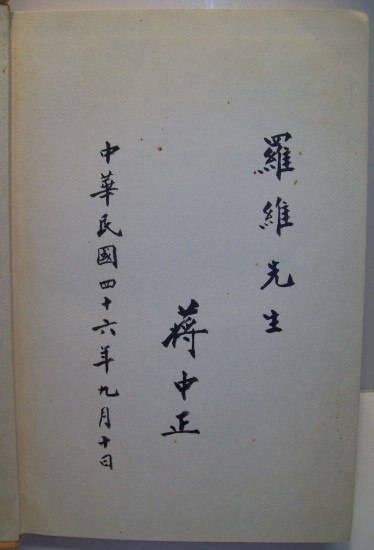 羅維先生
蔣中正
中華民國四十六年九月十日